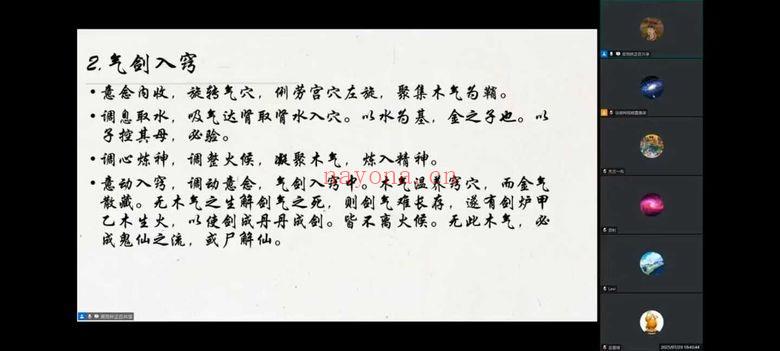 2.气剑入窍
• 意念内收，旋转气穴，俐劳宫穴左旋，聚集木气为鞘。
• 调息取水，吸气达肾取肾水入穴。以水为基，金之子也。以
子控其母，必验。
• 调心炼神，调整火候，凝聚木气，炼入精神。
• 意动入窍，调动意念，气剑入窍中。木气温养窍穴，而金气
散藏。无木气之生解剑气之死，则剑气难长存，遂有剑炉甲
乙木生火，以使剑成丹丹成剑。皆不离火候。无此木气，必
成鬼仙之流，或尸解仙。
nayona.cn
Levi
2025/07/29 19:43:44